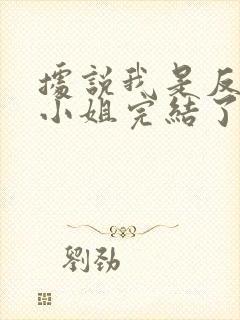 據說我是反
小姐完結了
劉勁